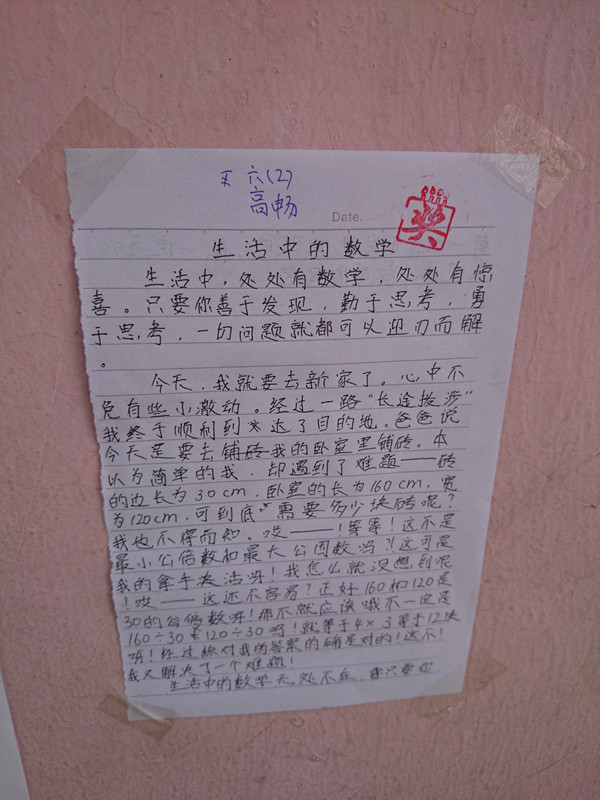 六(2)
高畅
Date.
奖
生活中的数学
生活中，处处有数学，处处有惊
喜。只要你善于发现，勤于思考，勇
于思考，一切问题就都可以迎刃而解
。
今天，我就要去新家了。心中不
免有些小激动。经过一路“长途拨涉”
我终于顺利到达了目的地。爸爸说
今天是要去铺砖我的卧室里铺砖。本
以为简单的我，却遇到了难题——砖
的边长为30cm，卧室的长为160cm，宽
为120cm，可到底需要多少块砖呢？
我也不得而知。哎——！等等！这不是
最小公倍数和最大公因数吗？！这可是
我的拿手决活呀！我怎么就没想到呢
！哎——这还不容易？正好160和120是
30的公倍数呀！那不就应该
160÷30 120÷30吗！就等于4×3等于12块
呀！经过核对我的答案的确是对的！这不！
我又解决了一个难题！
生活中的数学无处不在，只要你